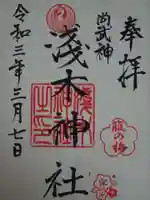 奉拝
尚武神
淺木神社
令和三年三月七日